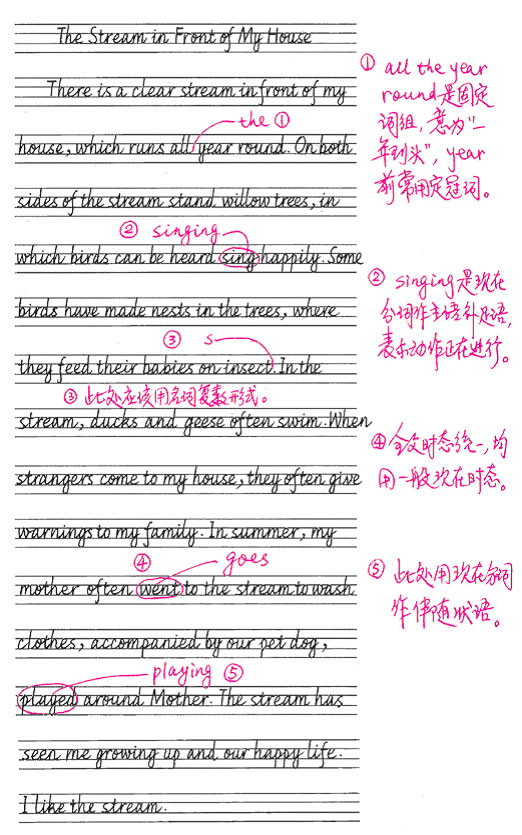 The Stream in Front of My House
There is a clear stream in front of my
the ①
house, which runs all year round. On both
sides of the stream stand willow trees, in
② singing
which birds can be heard sing happily. Some
birds have made nests in the trees, where
③ s
they feed their babies on insect. In the
③ 此处应该用名词复数形式。
stream, ducks and geese often swim. When
strangers come to my house, they often give
warnings to my family. In summer, my
④ goes
mother often went to the stream to wash
clothes, accompanied by our pet dog,
playing ⑤
played around Mother. The stream has
seen me growing up and our happy life.
I like the stream.
① all the year
round是固定
词组，意为“一
年到头”，year
前常用定冠词。
② singing是现在
分词作主语补足语，
表示动作正在进行。
④ 全文时态统一，均
用一般现在时态。
⑤ 此处用现在分词
作伴随状语。